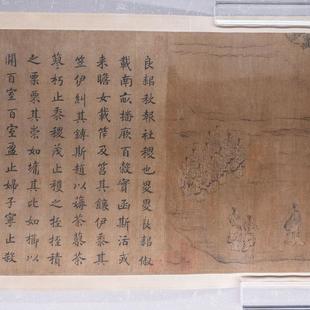 良耜秋報社稷也畟畟良耜俶
載南畝播厥百穀實函斯活或
來瞻女載筐及筥其饟伊黍其
笠伊糾其鎛斯趙以薅荼蓼荼
蓼朽止黍稷茂止穫之挃挃積
之栗栗其崇如墉其比如櫛以
開百室百室盈止婦子寧止殺